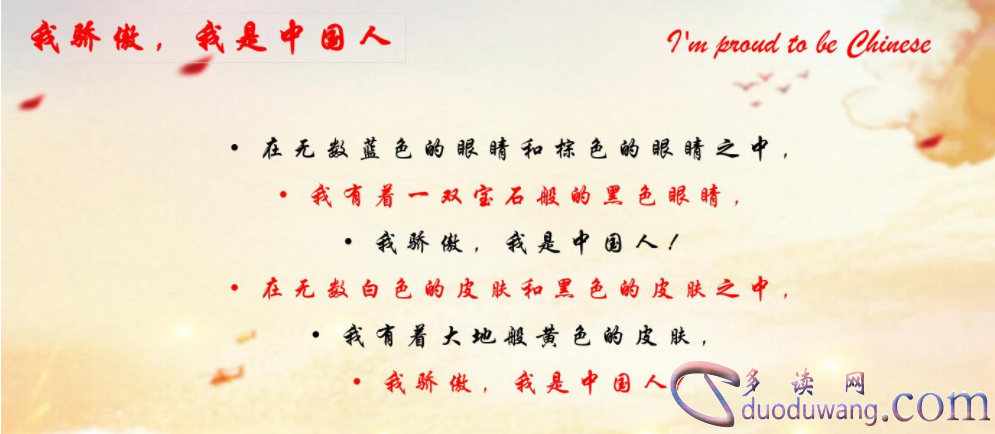 我骄傲，我是中国人
I'm proud to be Chinese
• 在无数蓝色的眼睛和棕色的眼睛之中，
• 我有着一双宝石般的黑色眼睛，
• 我骄傲，我是中国人！
• 在无数白色的皮肤和黑色的皮肤之中，
• 我有着大地般黄色的皮肤，
• 我骄傲，我是中国人！
多读网
duoduwang.com